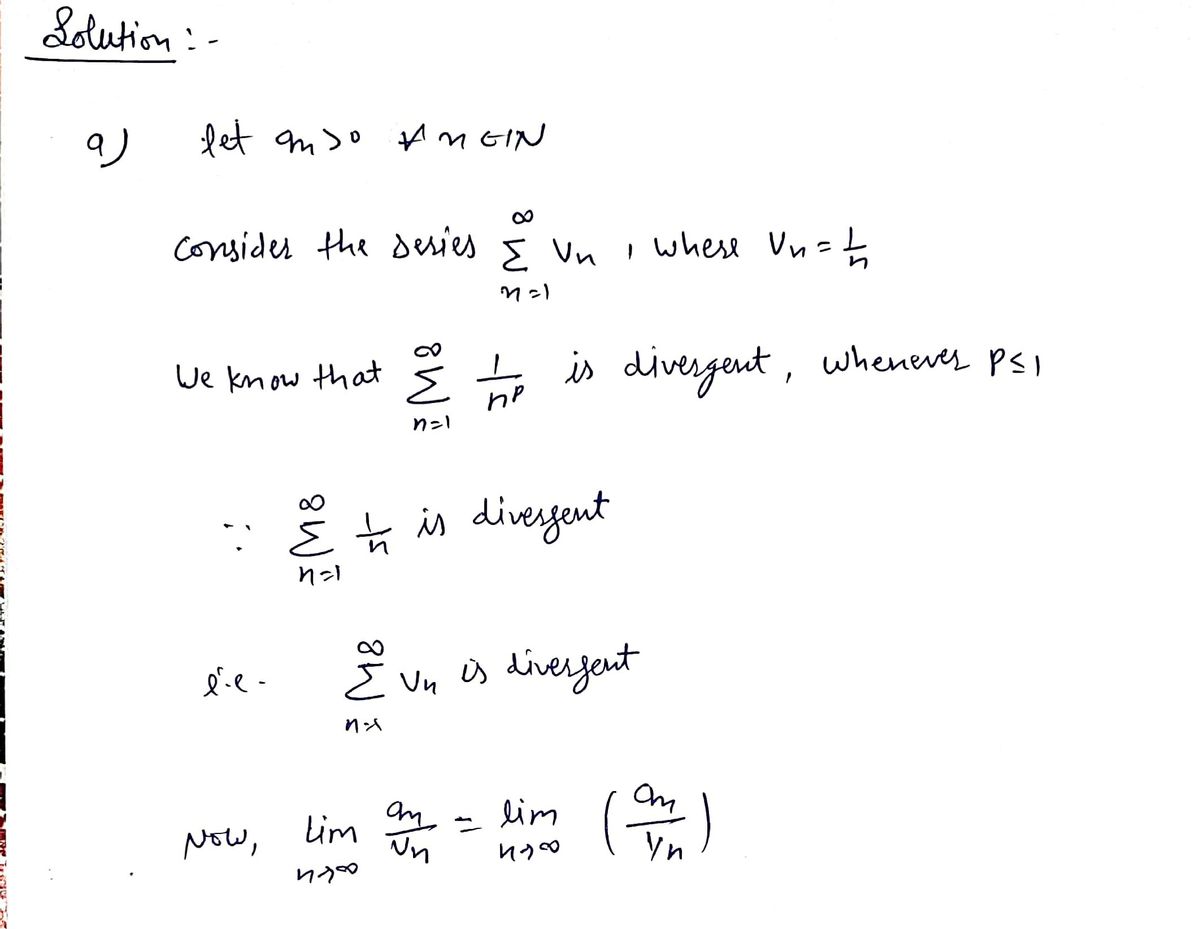 Solution :-
a) let aₙ > 0 ∀ n ∈ ℕ
Consider the series ∑_{n=1}^{∞} Vₙ , where Vₙ = 1/n
We know that ∑_{n=1}^{∞} 1/n^p is divergent, whenever P ≤ 1
∵ ∑_{n=1}^{∞} 1/n is divergent
i.e. ∑_{n=1}^{∞} Vₙ is divergent
Now, lim_{n→∞} aₙ/Vₙ = lim_{n→∞} (aₙ / 1/n)